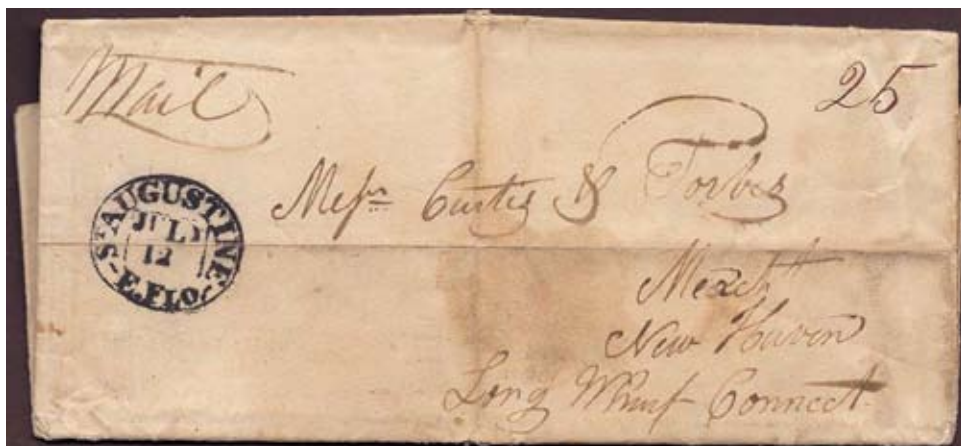 Mail
25
Sᵀ AUGUSTINE
JULY
12
E. FLO.
Messrs Curtis & Forbes
Mercht
New Haven
Long Wharf Connect.